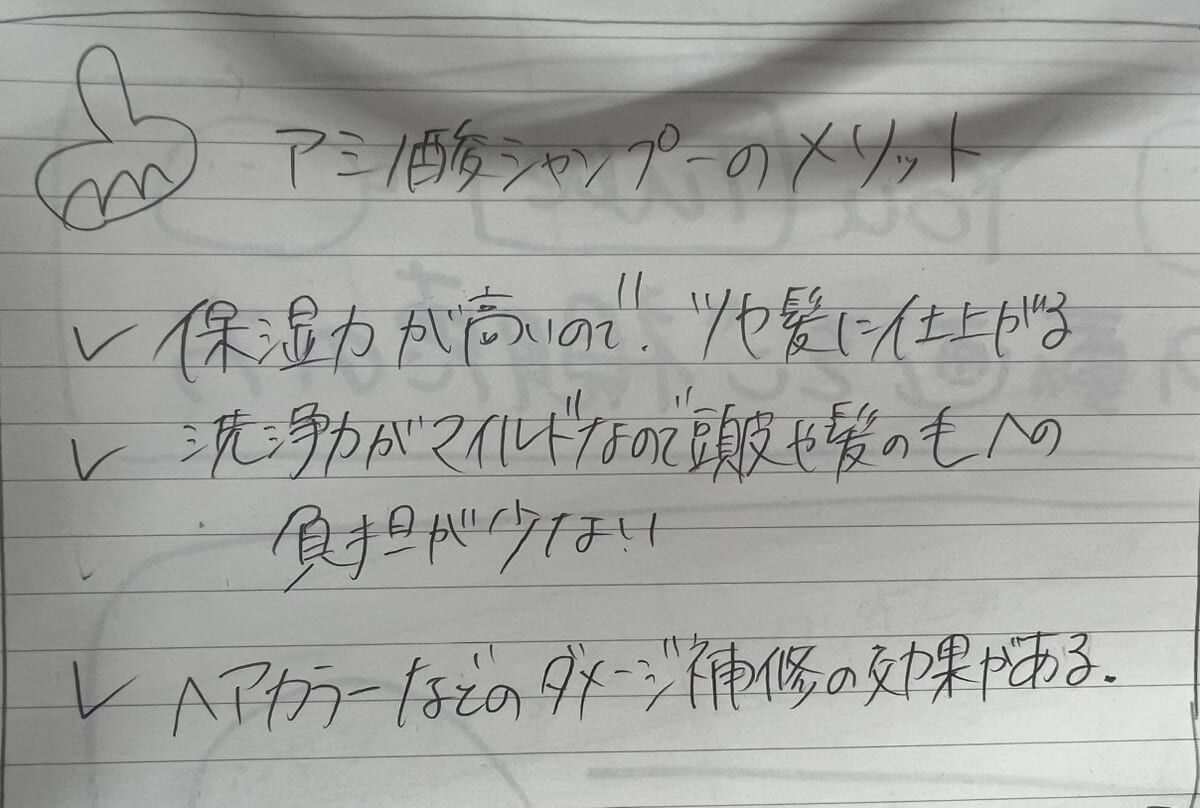 アミノ酸シャンプーのメリット
✓ 保湿力が高いので、ツヤ髪に仕上がる
✓ 洗浄力がマイルドなので頭皮や髪の毛への
負担が少ない
✓ ヘアカラーなどのダメージ補修の効果がある.